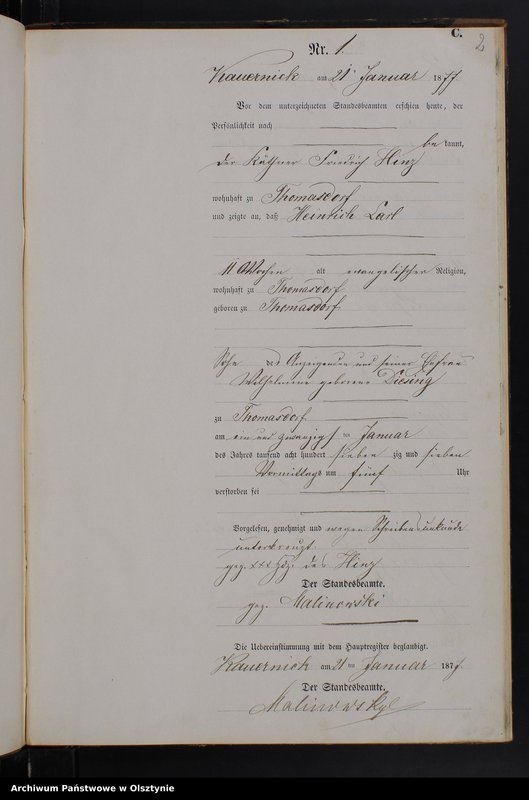 C.
2
Nr. 1.
Kauernick am 21 Januar 1877
Vor dem unterzeichneten Standesbeamten erschien heute, der
Persönlichkeit nach
be kannt,
der Käthner Friedrich Hinz
wohnhaft zu Thomasdorf
und zeigte an, daß Heinrich Carl
11 Wochen alt evangelischer Religion,
wohnhaft zu Thomasdorf
geboren zu Thomasdorf
Sohn des Anzeigenden und seiner Ehefrau
Wilhelmine geborene Diesing
zu Thomasdorf
am ein und zwanzigs ten Januar
des Jahres tausend acht hundert sieben zig und sieben
Vormittags um fünf Uhr
verstorben sei
Vorgelesen, genehmigt und wegen Schreibensunkunde
unterkreuzt.
gez. xxx Hdz. des Hinz
Der Standesbeamte.
gez. Malinowski
Die Uebereinstimmung mit dem Hauptregister beglaubigt.
Kauernick am 21 ten Januar 1877
Der Standesbeamte.
Archiwum Państwowe w Olsztynie